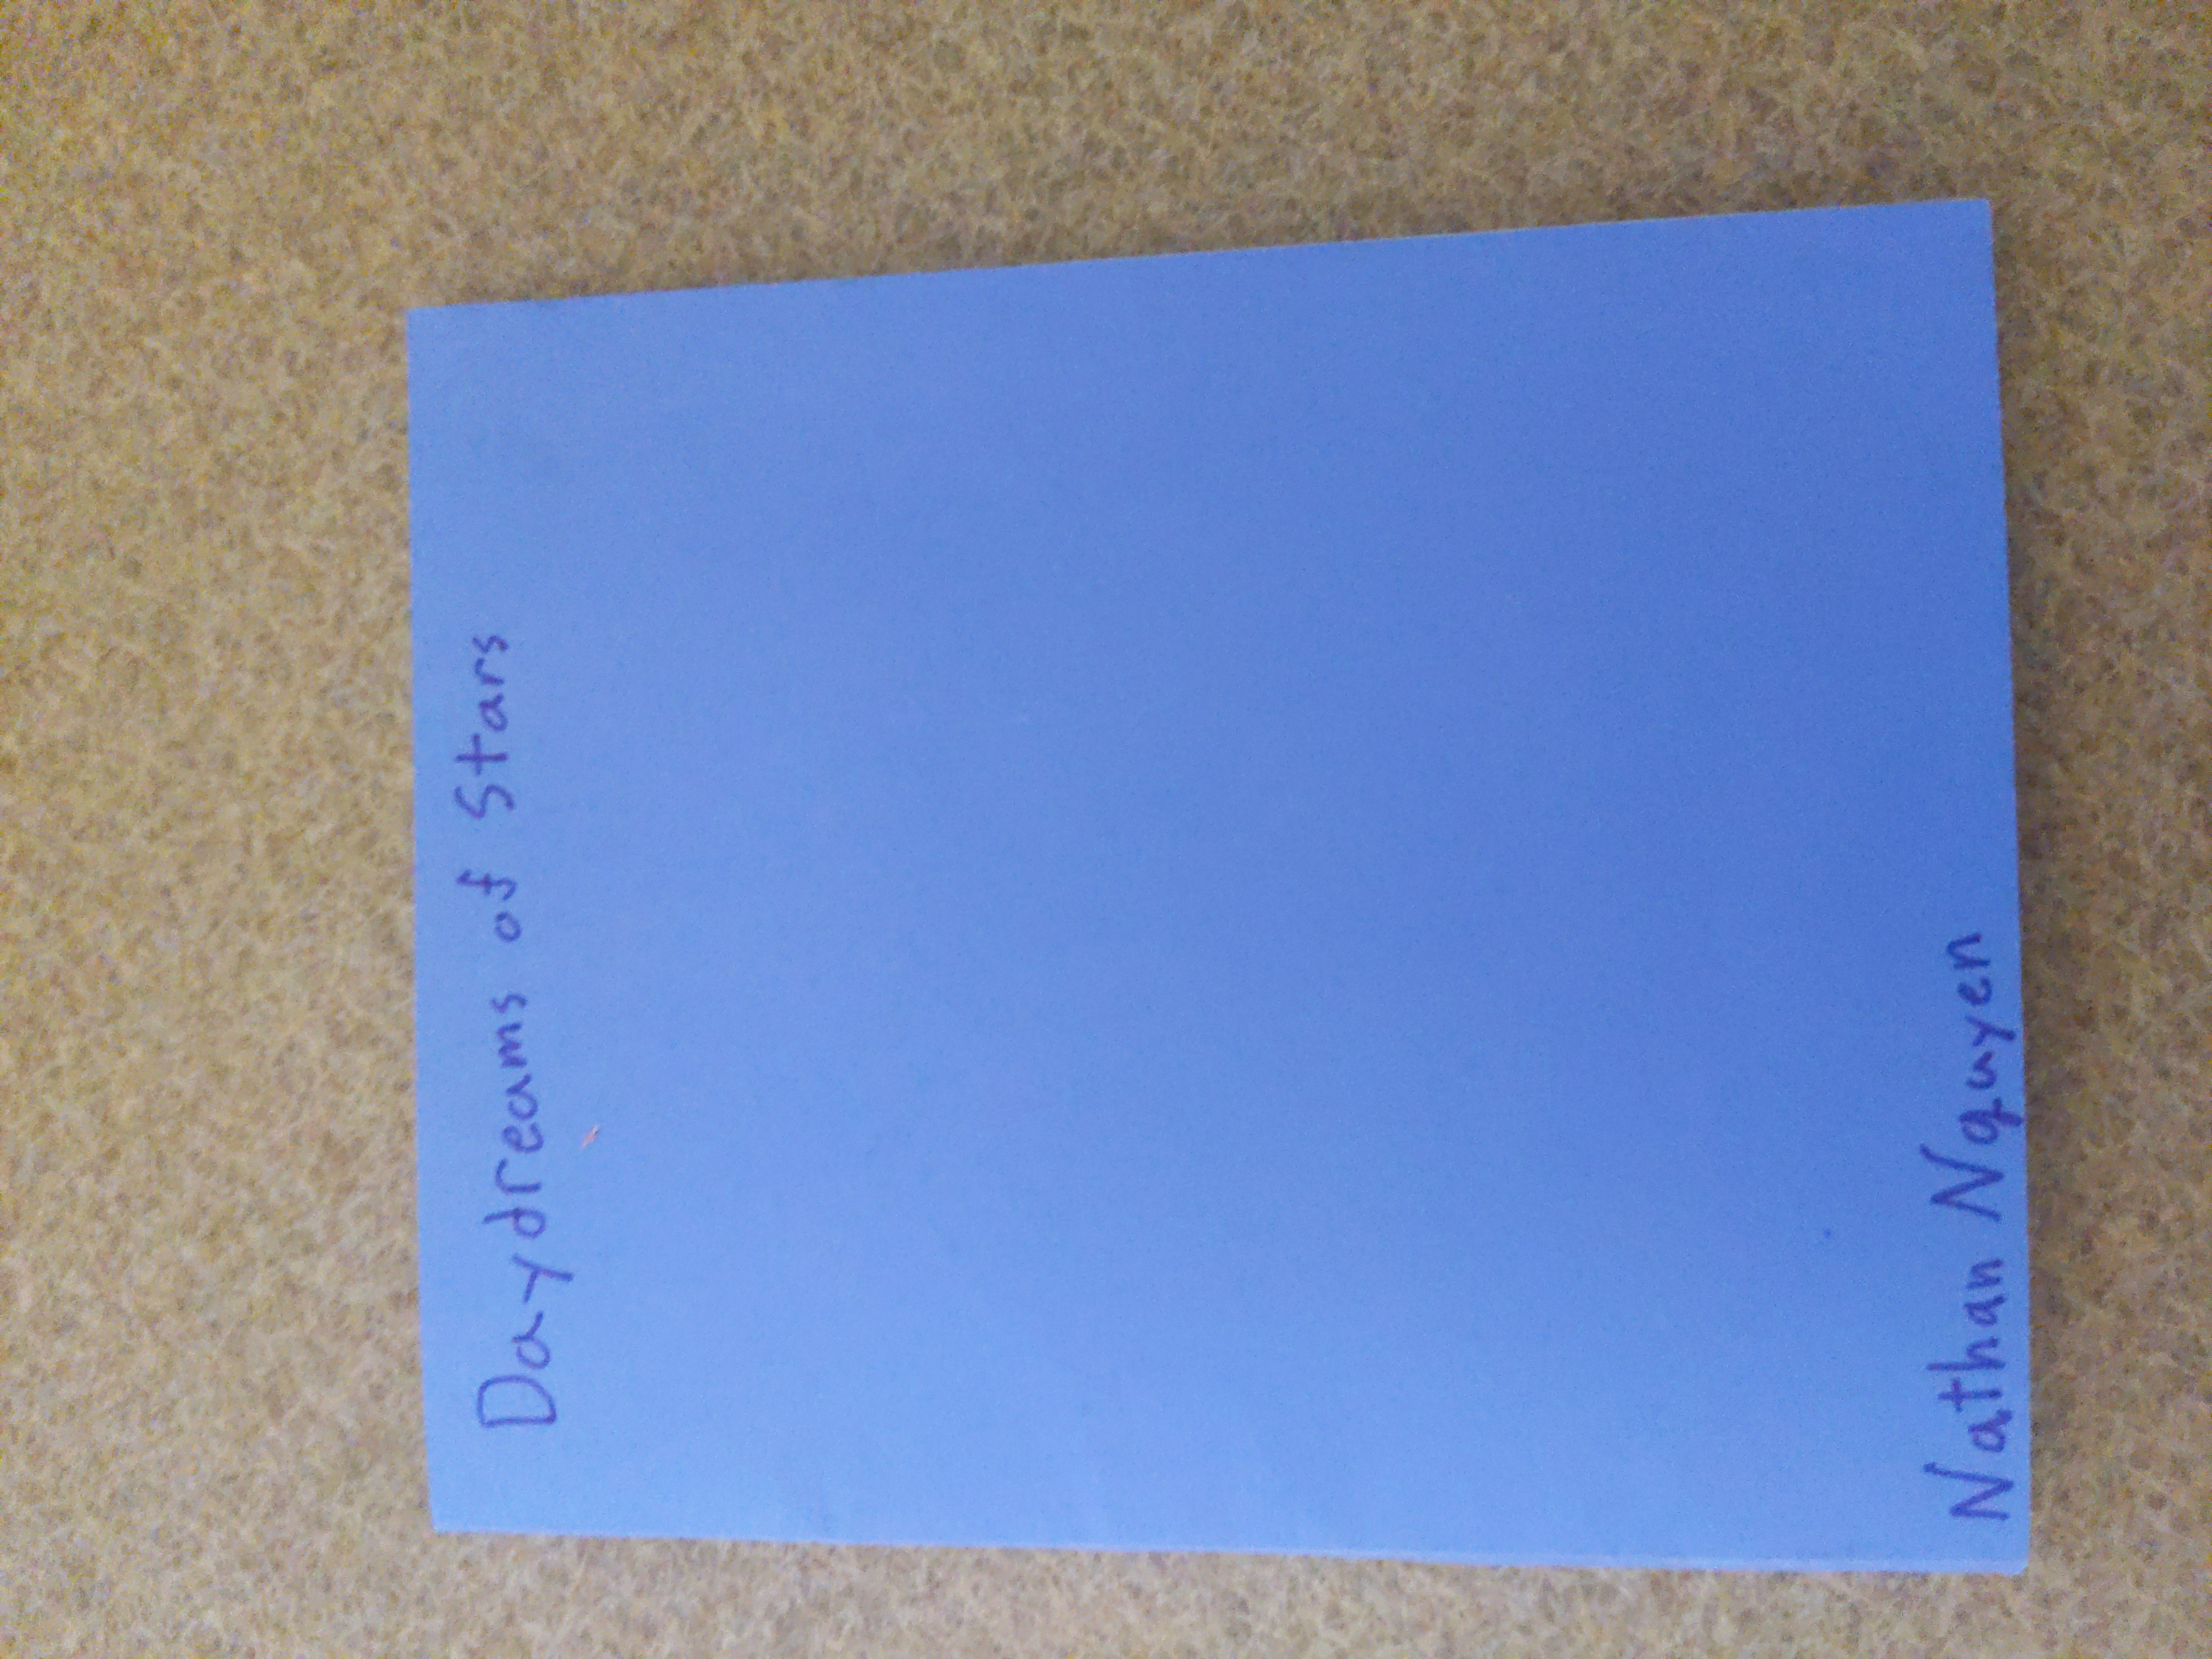 Daydreams of Stars
Nathan Nguyen